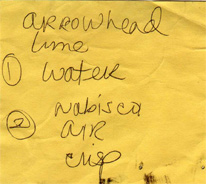 ARROWHEAD
lime
① WATER
Nabisco
② AIR
crisp